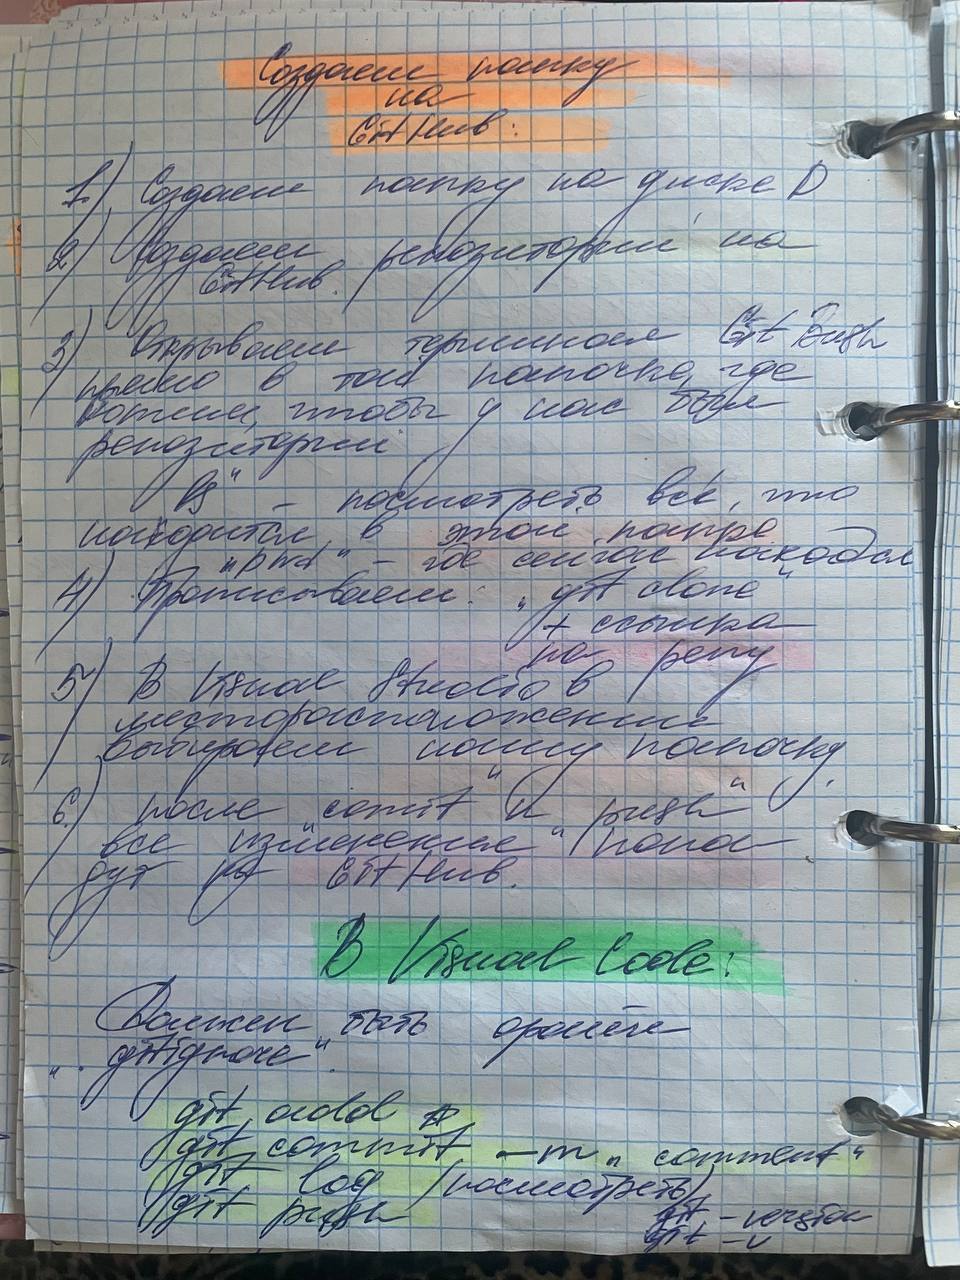 Создаем папку
на
GitHub:
1) Создаем папку на диске D
2) Создаем репозиторий на
GitHub.
3) Открываем терминал Git Bash
прямо в той папочке, где
хотим, чтобы у нас был
репозиторий
"ls" - посмотреть всё, что
находится в этой папке
"pwd" - где сейчас находимся
4) Прописываем: "git clone"
+ ссылка
на репу
5) В Visual Studio в
месторасположение
выбираем нашу папочку.
6) после "comit" и "push"
все изменения попа-
дут на GitHub.
В Visual Code:
Должен быть файл
".gitignore".
git add *
git commit -m "comment"
git log (посмотреть)
git push
git -version
git -v